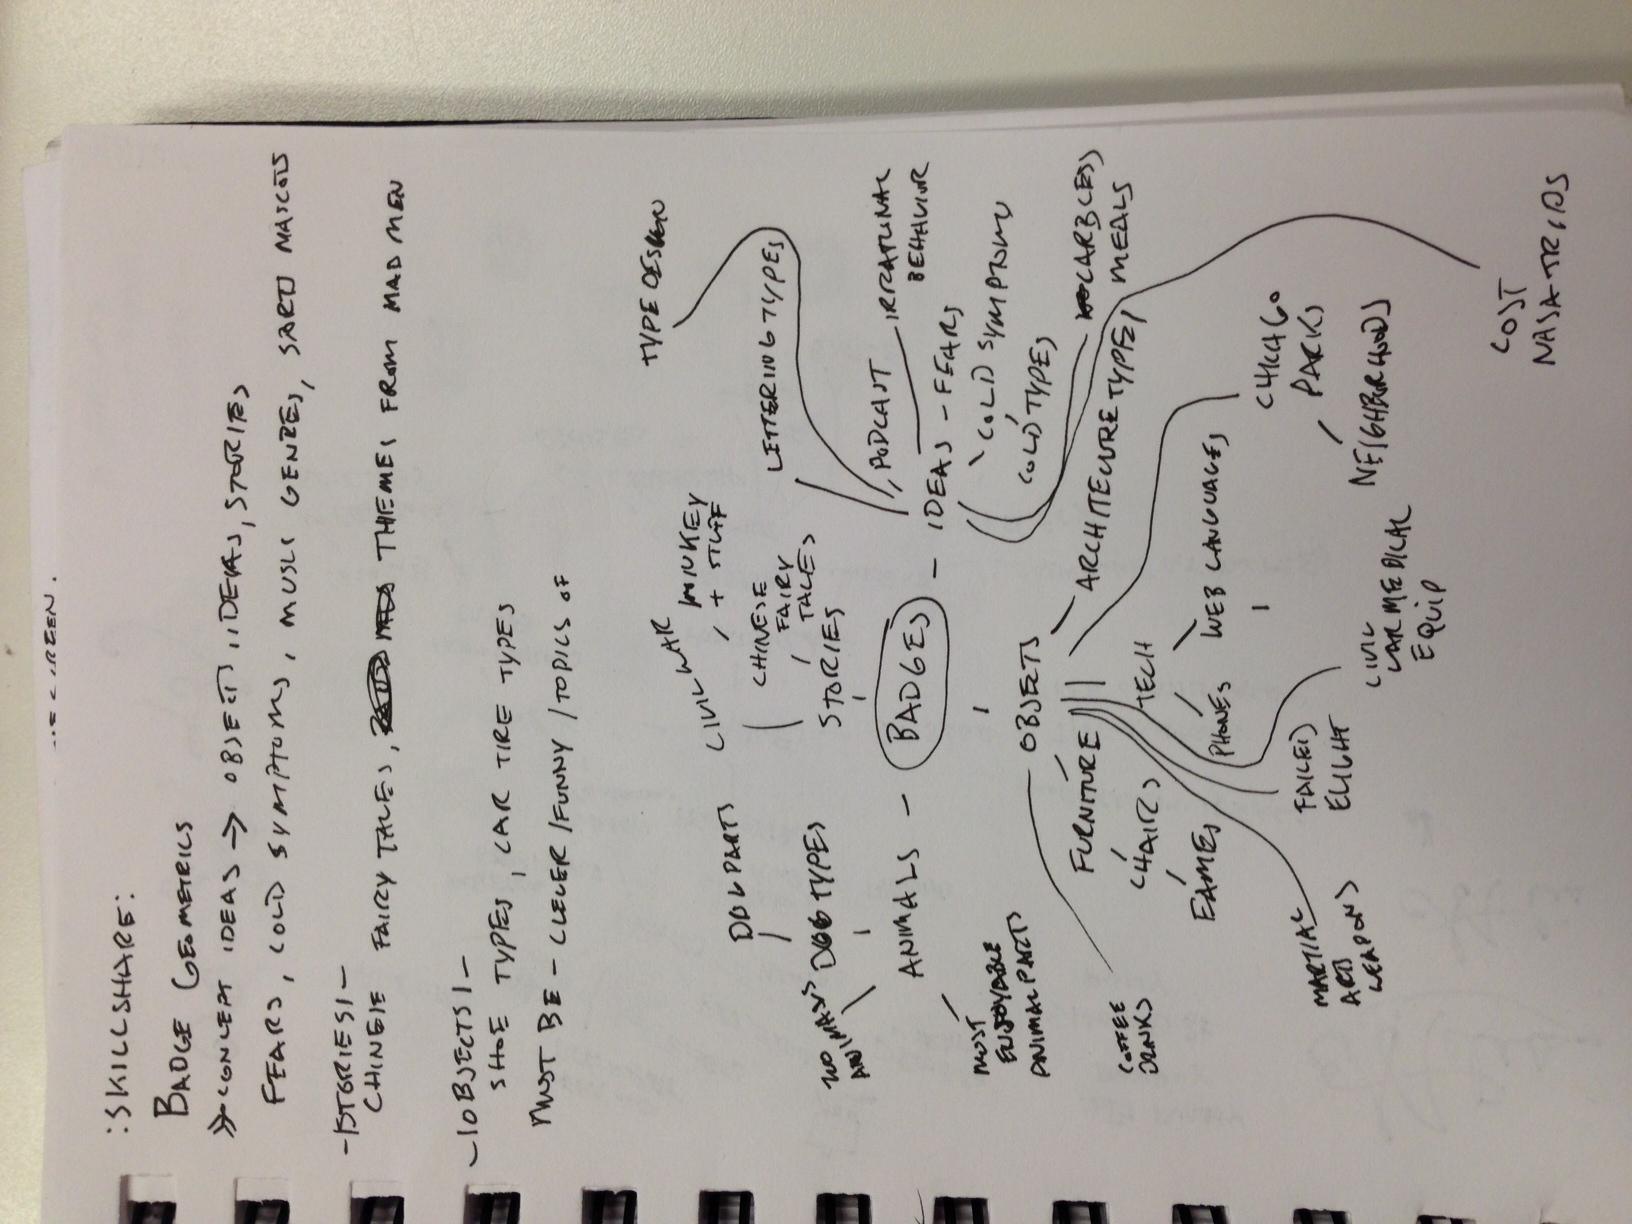 :SKILLSHARE:
BADGE GEOMETRICS
>> CONCEPT IDEAS → OBJECTS, IDEAS, STORIES
FEARS, COLD SYMPTOMS, MUSIC GENRES, MASCOTS
-|STORIES|-
CHINESE FAIRY TALES, THEMES FROM MAD MEN
-|OBJECTS|-
SHOE TYPES, CAR TIRE TYPES
MUST BE - CLEVER/FUNNY/TOPICS OF
TYPE DESIGN
LETTERING TYPES
CIVIL WAR
MONKEY
+ STUFF
CHINESE
FAIRY
TALES
STORIES
DOG PARTS
DOG TYPES
ZOO
ANIMALS
ANIMALS
MOST
ENJOYABLE
ANIMAL PARTS
BADGES
PODCAST
IRRATIONAL
BEHAVIOR
IDEAS - FEARS
COLD SYMPTOMS
COLD TYPES
MEALS
OBJECTS
ARCHITECTURE TYPES
FURNITURE
CHAIRS
EAMES
TECH
PHONES
WEB LANGUAGES
CHICAGO
PARKS
NEIGHBORHOODS
LOST
NASA TRIPS
CIVIL
WAR MEDICAL
EQUIP
FAILED
FLIGHT
MARTIAL
ARTS
WEAPONS
COFFEE
DRINKS